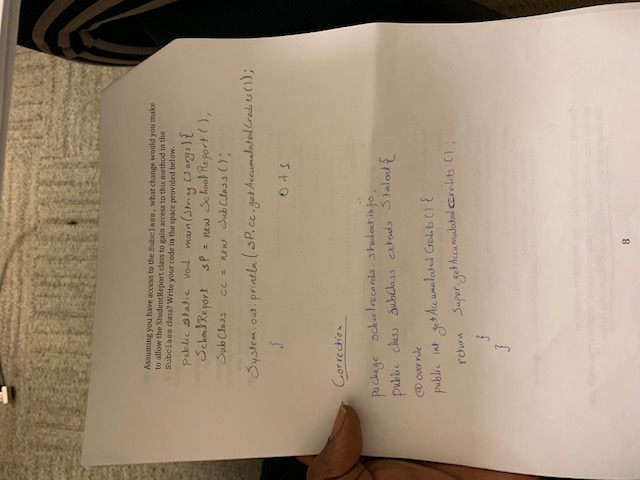 Assuming you have access to the Subclass, what change would you make
to allow the StudentReport class to gain access to this method in the
Subclass class? Write your code in the space provided below.
public static void main(String []args){
SchoolReport sP = new SchoolReport();
SubClass cc = new SubClass();
System.out.println(sP.cc.getAccumulatedCredits());
}
0+1
Correction
package schoolrecords.studentinfo;
public class SubClass extends Student{
@override
public int getAccumulatedCredits(){
return Super.getAccumulatedCredits();
}
}
8